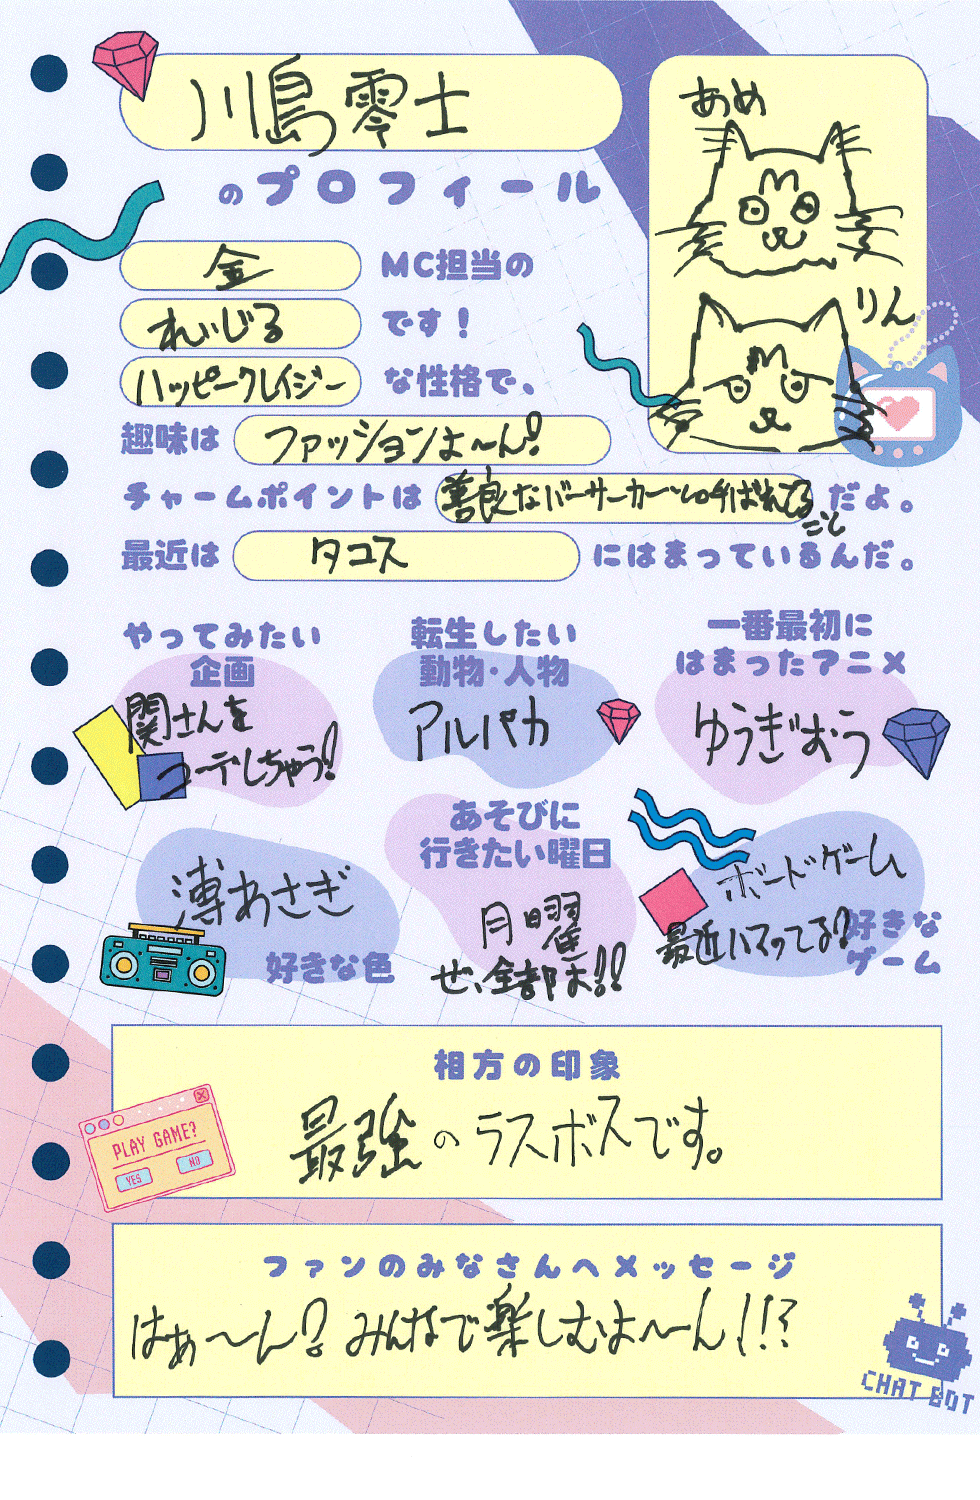 川島零士
のプロフィール
あめ
りん
金 MC担当の
れいじる です！
ハッピークレイジー な性格で、
趣味は ファッションよ〜ん!
チャームポイントは 善良なバーサーカーと呼ばれてること だよ。
最近は タコス にはまっているんだ。
やってみたい
企画
関さんを
コーデしちゃう!
転生したい
動物・人物
アルパカ
一番最初に
はまったアニメ
ゆうぎおう
薄あさぎ
好きな色
あそびに
行きたい曜日
月曜
ぜ、全部よ!!
ボードゲーム
最近ハマってる!
好きな
ゲーム
相方の印象
最強のラスボスです。
PLAY GAME?
YES
NO
ファンのみなさんへメッセージ
はぁ〜ん! みんなで楽しむよ〜ん!!?
CHAT BOT